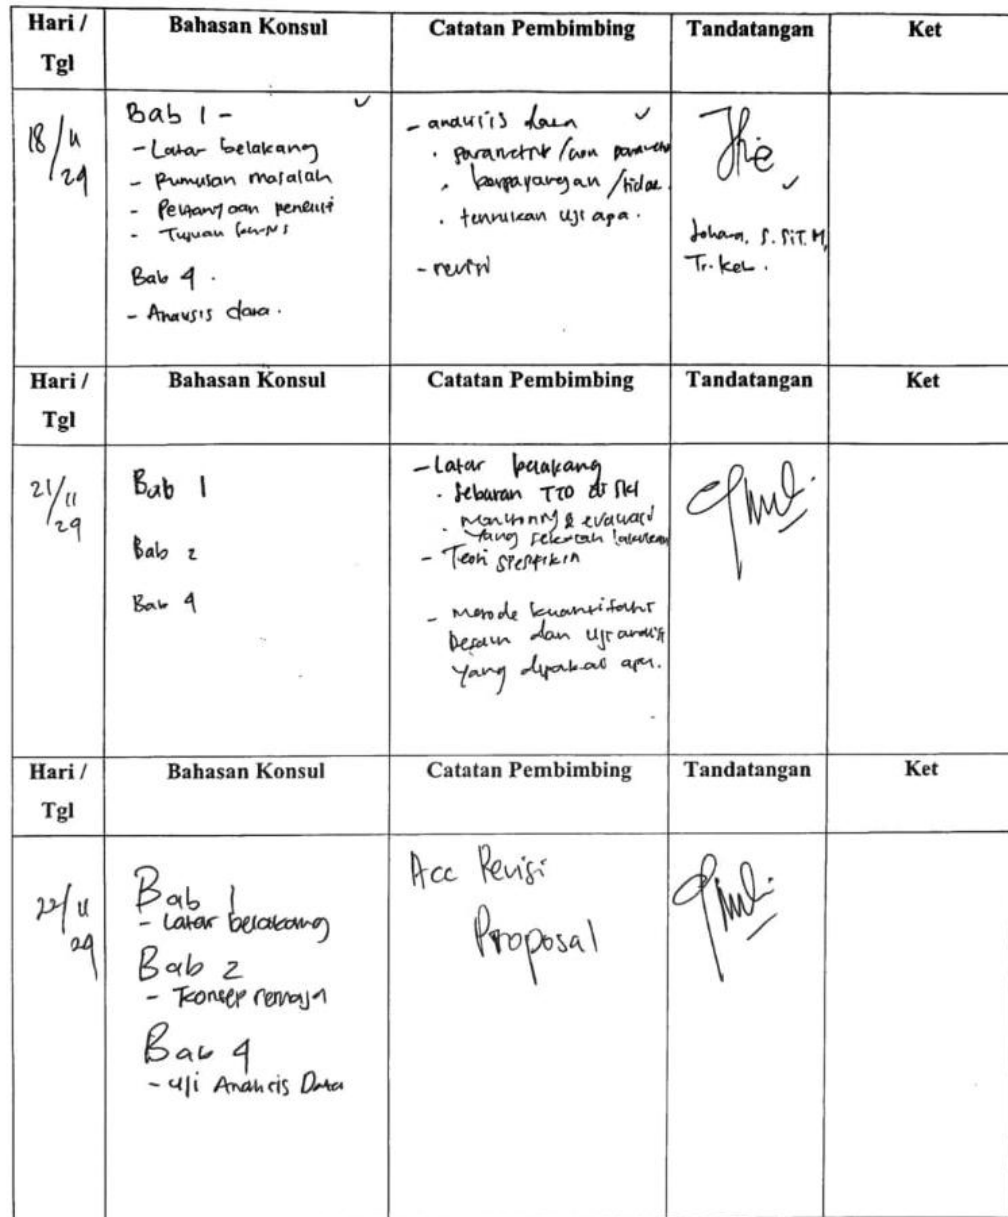 Hari / Tgl Bahasan Konsul Catatan Pembimbing Tandatangan Ket
18/11/24
Bab 1 -
- Latar belakang
- Rumusan masalah
- Pertanyaan peneliti
- Tujuan
Bab 4 .
- Analisis data .
- analisis data
. parametrik / non parametrik
. berpasangan / tidak .
. tentukan uji apa .
- revisi
Johara, S.SiT. M,
Tr. Keb .
Hari / Tgl Bahasan Konsul Catatan Pembimbing Tandatangan Ket
21/11/24
Bab 1
Bab 2
Bab 4
- Latar belakang
. Sebaran TTD di
. Monitoring & evaluasi
yang lakukan
- Teori
- Metode kuantitatif
Desain dan uji analisis
yang dipakai apa.
Hari / Tgl Bahasan Konsul Catatan Pembimbing Tandatangan Ket
22/11/24
Bab 1
- Latar belakang
Bab 2
- Konsep remaja
Bab 4
- Uji Analisis Data
Acc Revisi
Proposal